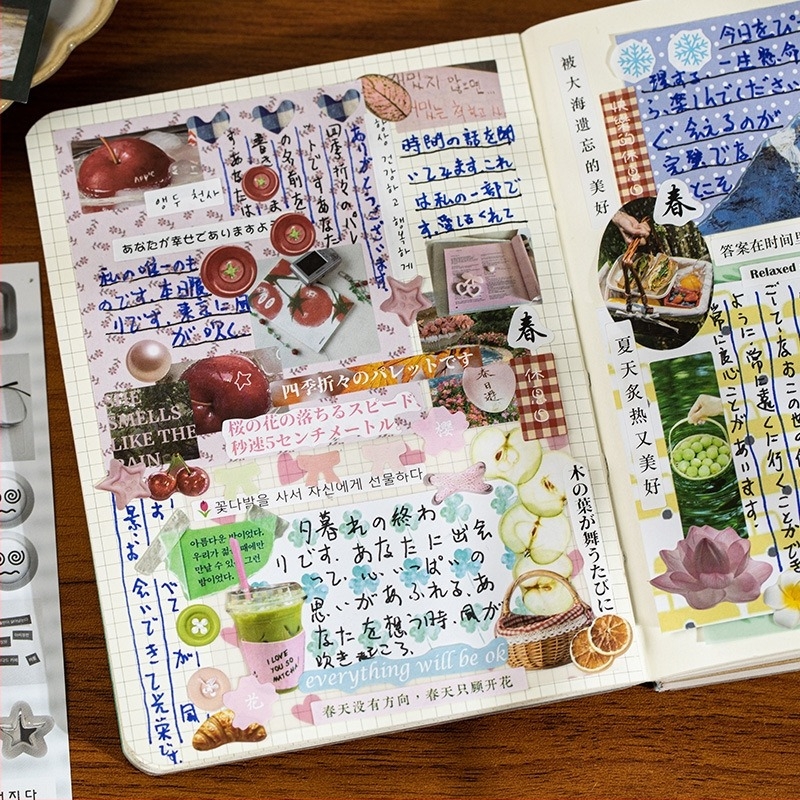 nope
앵두 천사
あなたが幸せでありますよ
ありがとうございます
四季折々のパレ
トですあなた
の名前を
書きま
すあなたは
私の唯一のも
のです。本日限
りです。東京に風
が吹く
항상 건강하고 행복하게
時間の話を聞
いてますこれ
は私の一部で
す。愛しくれて
春
春日遊
休日
四季折々のパレットです
SHE
SMELLS
LIKE THE
RAIN
桜の花の落ちるスピード
秒速5センチメートル
桜
꽃나발을 사서 자신에게 선물하다
아름다운 밤이었다.
우리가 젊
만날 수 있
그런
밤이었다.
夕暮れの終わ
りです。あなたに出会
って、心いっぱいの
思いがあふれる、あ
なたを想う時、風が
吹き起こる。
I LOVE
YOU SO
MATCHA!
everything will be ok
春天没有方向，春天只顾开花
花
会いできて光栄です。
木の葉が舞うたびに
被大海遗忘的美好
快乐的休日
春
夏天炙热又美好
今日をぴ
一生懸命
ら、楽しんでください
ぐ会えるのが
完璧で友
とそ
答案在时间里
Relaxed
ように、常に遠くに行くことができ
常に良心ことがあります。